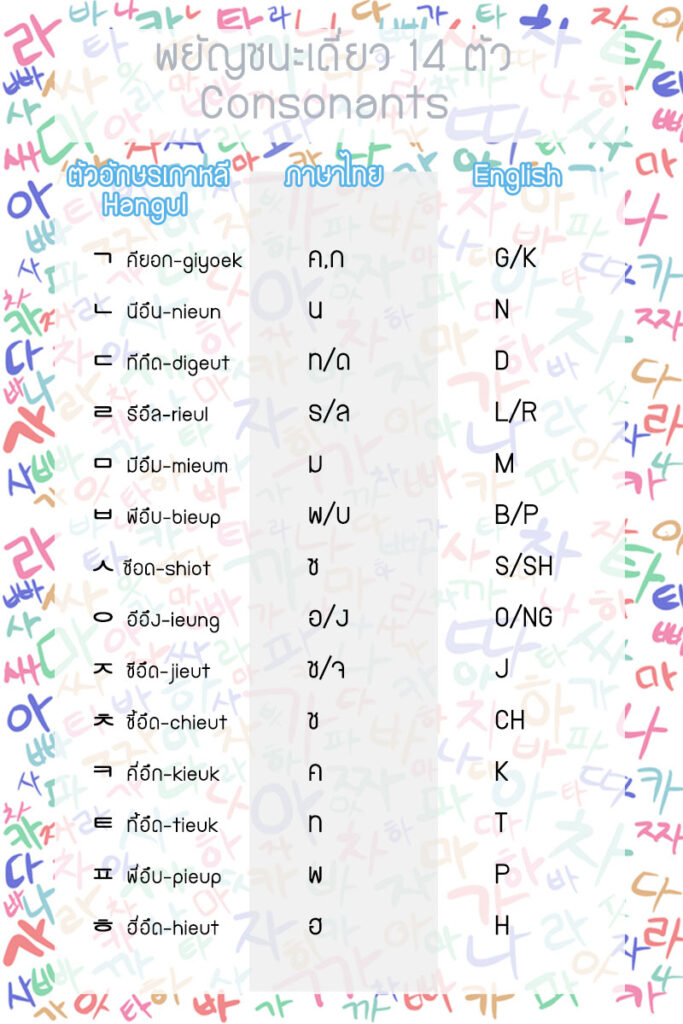 พยัญชนะเดี่ยว 14 ตัว
Consonants
ตัวอักษรเกาหลี ภาษาไทย English
Hangul
ㄱ คียอก-giyoek ค,ก G/K
ㄴ นีอึน-nieun น N
ㄷ ทีกึด-digeut ท/ด D
ㄹ รีอึล-rieul ร/ล L/R
ㅁ มีอึม-mieum ม M
ㅂ พีอึบ-bieup พ/บ B/P
ㅅ ซีอด-shiot ซ S/SH
ㅇ อีอึง-ieung อ/ง O/NG
ㅈ ชีอึด-jieut ช/จ J
ㅊ ชี้อึด-chieut ช CH
ㅋ คี่อึก-kieuk ค K
ㅌ ที้อึด-tieuk ท T
ㅍ พี่อึบ-pieup พ P
ㅎ ฮี่อึด-hieut ฮ H